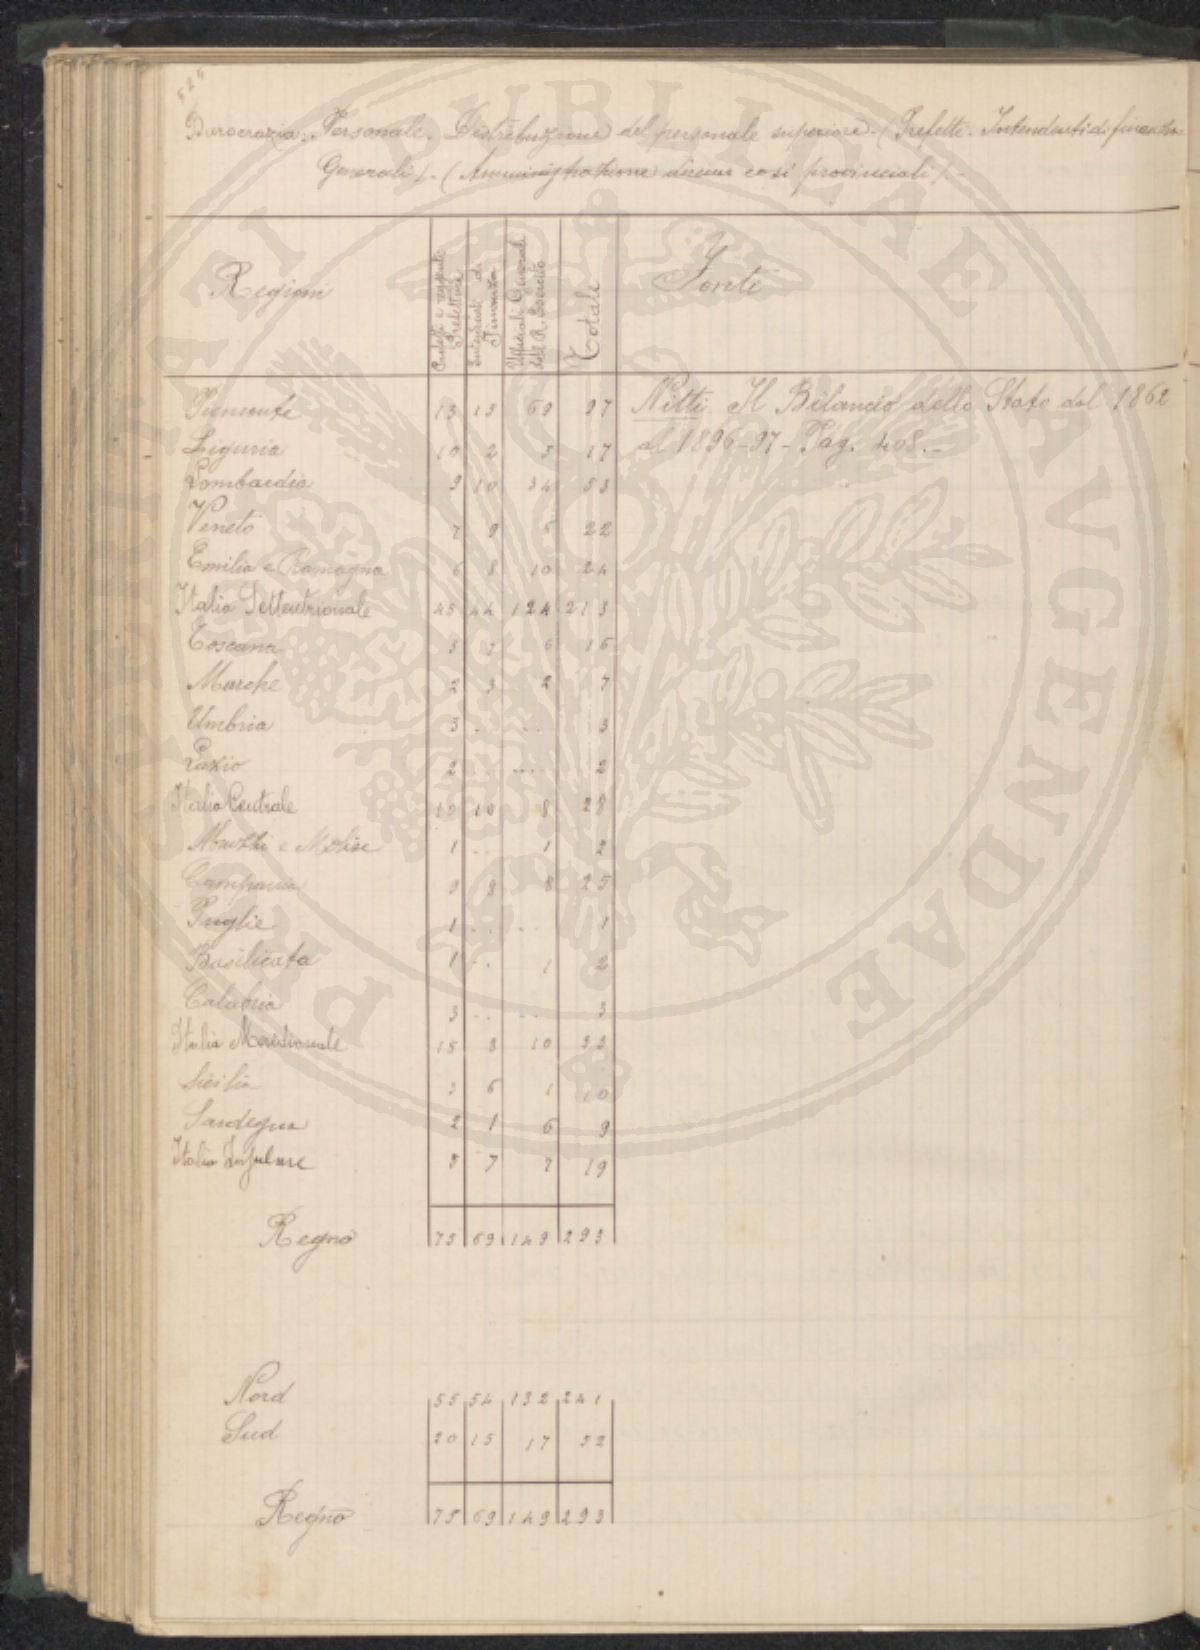 525
Burocrazia: Personale. Distribuzione del personale superiore - (Prefetti - Intendenti di finanza -
Generali). - (Amministrazione circoscrizioni provinciali). -
Regioni | Prefetti e reggenti Prefetture | Intendenti di Finanza | Ufficiali Generali del R. Esercito | Totale | Fonte
Piemonte 13 15 69 97 Nitti. Il Bilancio dello Stato dal 1862
Liguria 10 2 5 17 al 1896-97 - Pag. 408. -
Lombardia 9 10 34 53
Veneto 7 9 6 22
Emilia e Romagna 6 8 10 24
Italia Settentrionale 45 44 124 213
Toscana 3 7 6 16
Marche 2 3 2 7
Umbria 3 .. ... 3
Lazio 2 .. .... 2
Italia Centrale 10 10 8 28
Abruzzi e Molise 1 .. 1 2
Campania 9 8 8 25
Puglie 1 .. .. 1
Basilicata 1 .. 1 2
Calabria 3 .. ... 3
Italia Meridionale 15 8 10 33
Sicilia 3 6 1 10
Sardegna 2 1 6 9
Italia Insulare 5 7 7 19
Regno 75 69 149 293
Nord 55 54 132 241
Sud 20 15 17 52
Regno 75 69 149 293
PUBLICAE
AVGENDAE